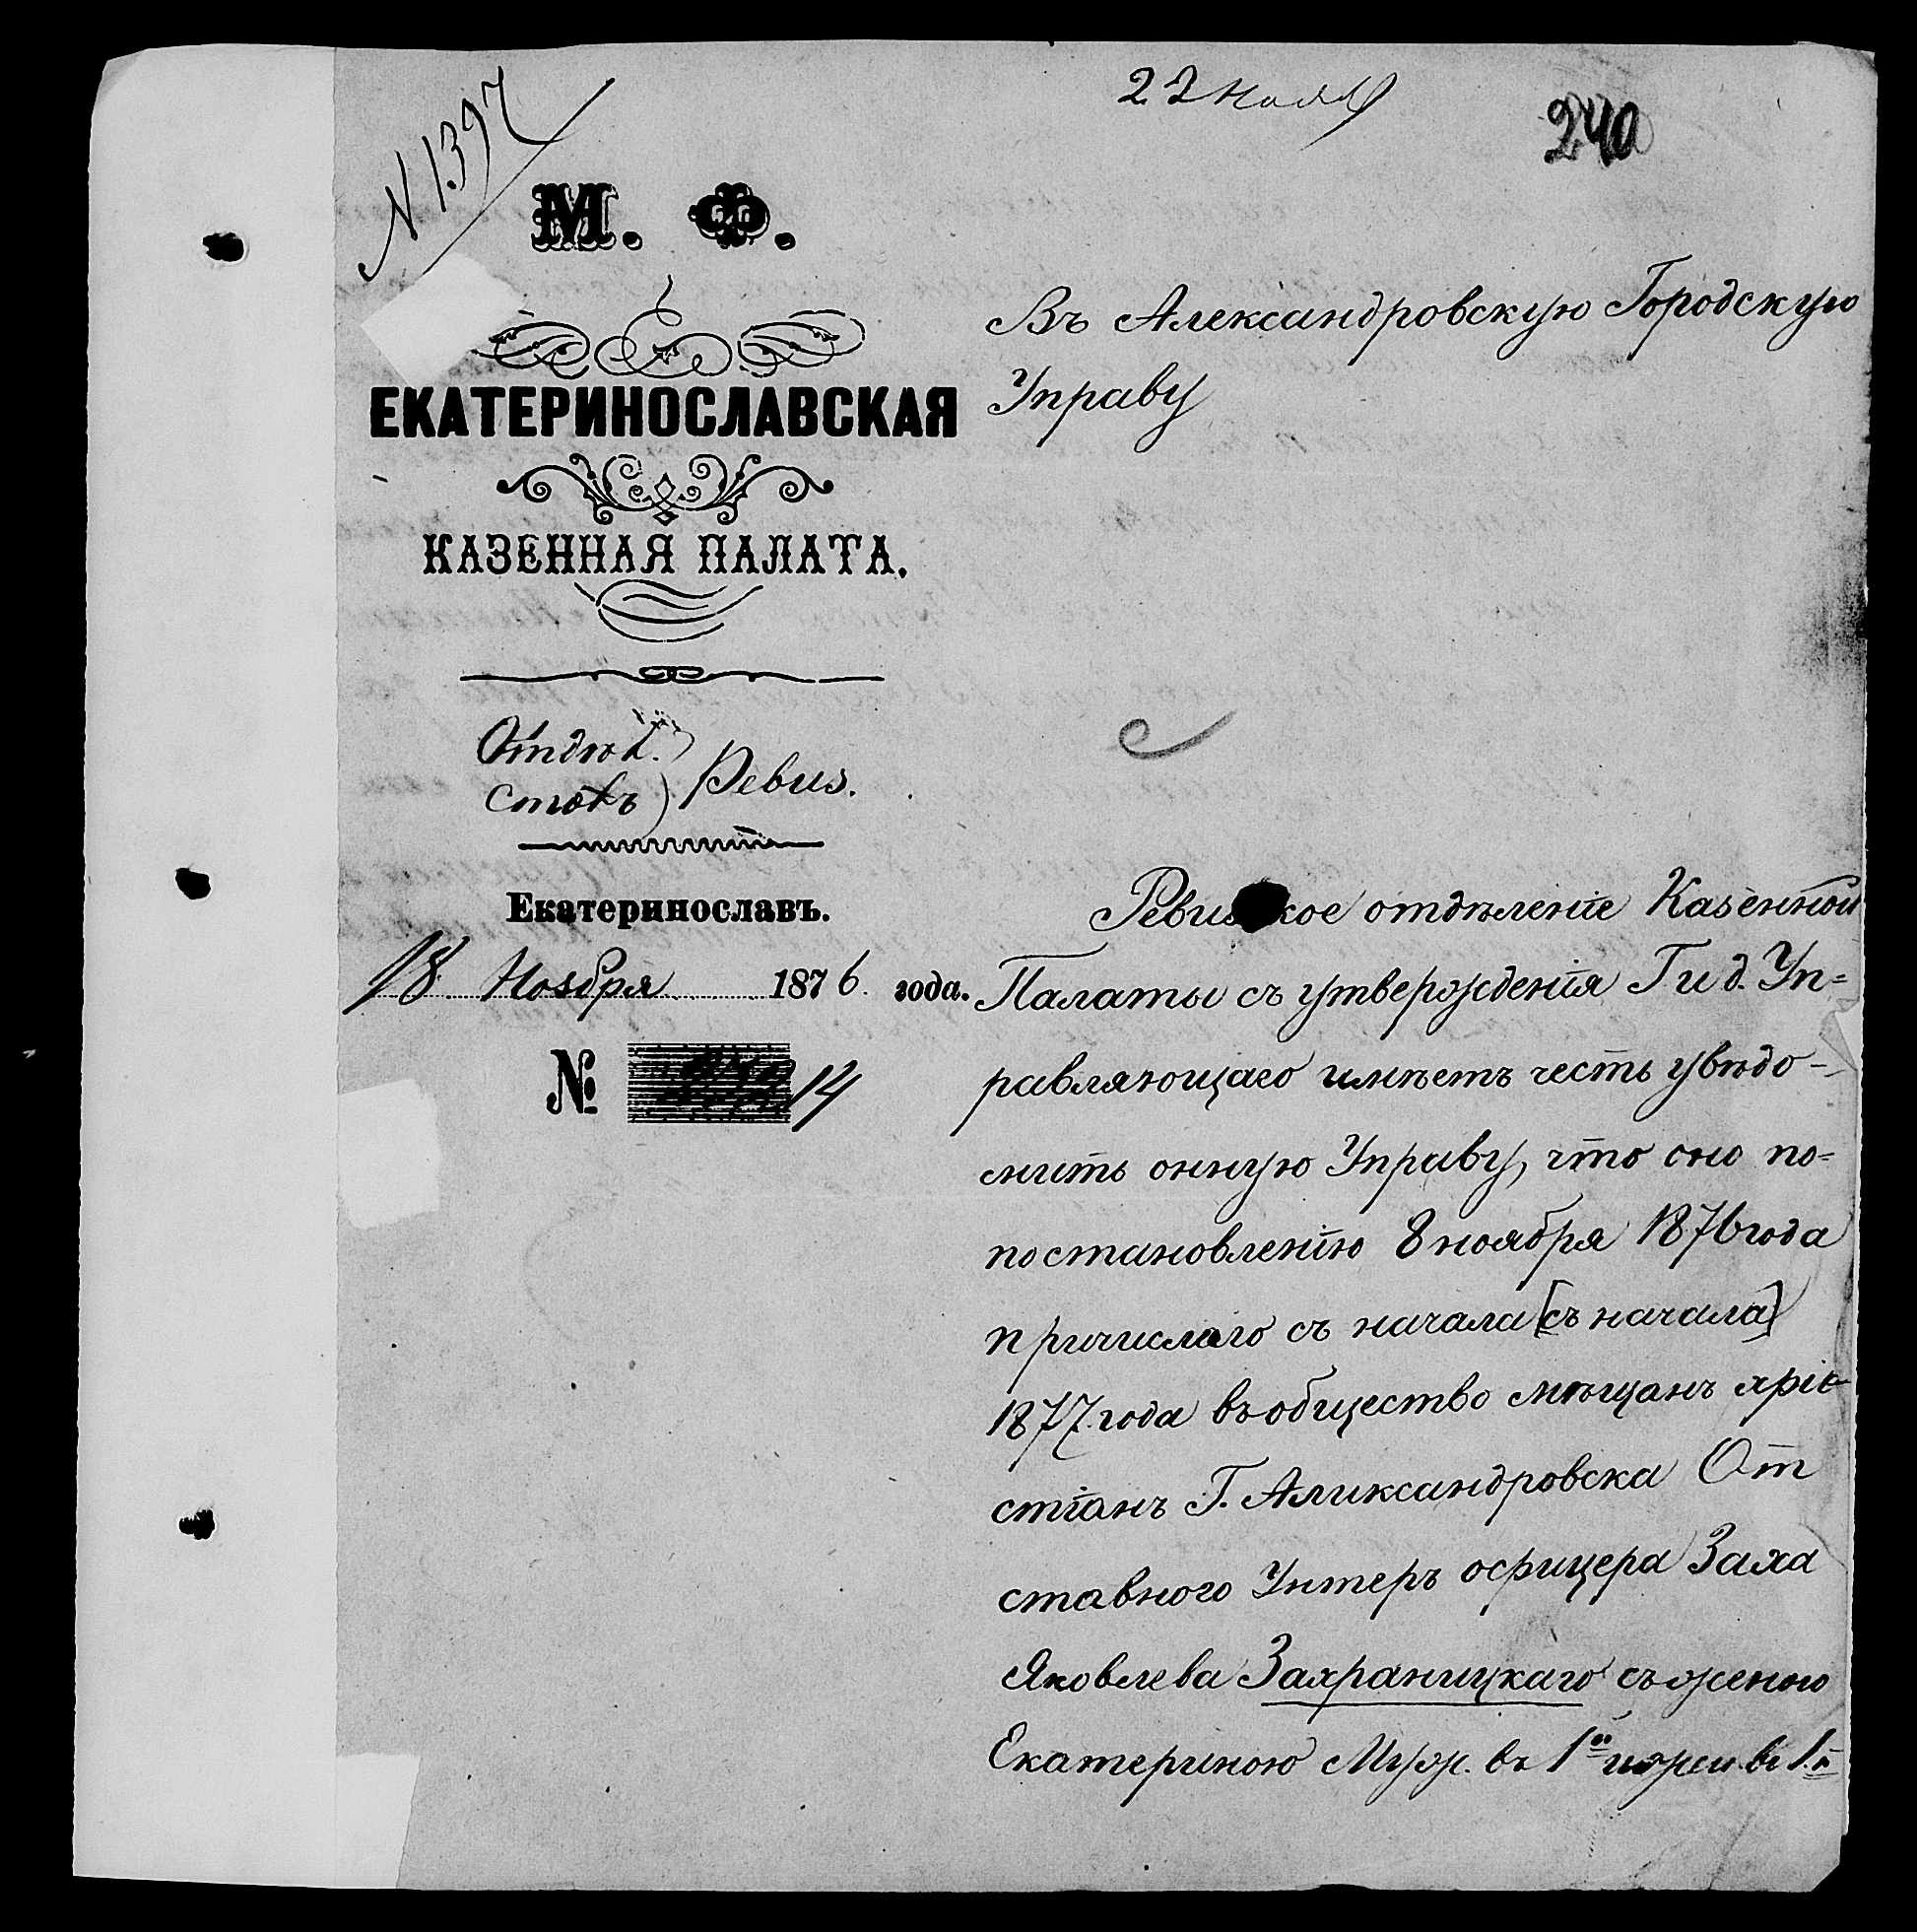 N 1397
22 Ноя
240
М. Ф.
ЕКАТЕРИНОСЛАВСКАЯ
КАЗЕННАЯ ПАЛАТА.
Отдѣл.
Столъ ) Ревиз.
Екатеринославъ.
18 Ноября 1876 года.
№ 14
Въ Александровскую Городскую
Управу
Ревизское отдѣленіе Казенной
Палаты съ утвержденія Г и д. Уп=
равляющаго имѣетъ честь увѣдо-
мить онную Управу, что оно по=
постановленію 8 ноября 1876 года
причислаго съ начала [съ начала]
1877 года въ общество мѣщанъ хріс
стіанъ Г. Аликсандровска От
ставного Унтеръ офицера Заха
Яковлева Захраницкаго съ женою
Екатериною Муж. въ 1й и жен. въ 1й